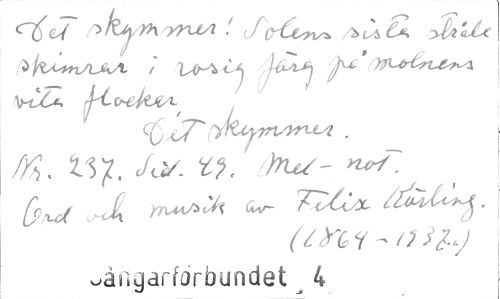 Det skymmer! Solens sista stråle
skimrar i rosig färg på molnens
vita flockar
Det skymmer.
Nr. 237. Sid. 49. Mel-not.
Ord och musik av Felix Körling.
(1864-1937.)
Sångarförbundet 4